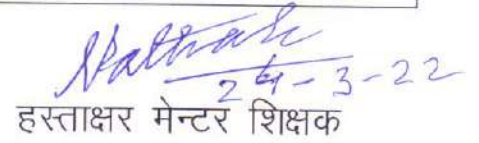 24-3-22
हस्ताक्षर मेन्टर शिक्षक